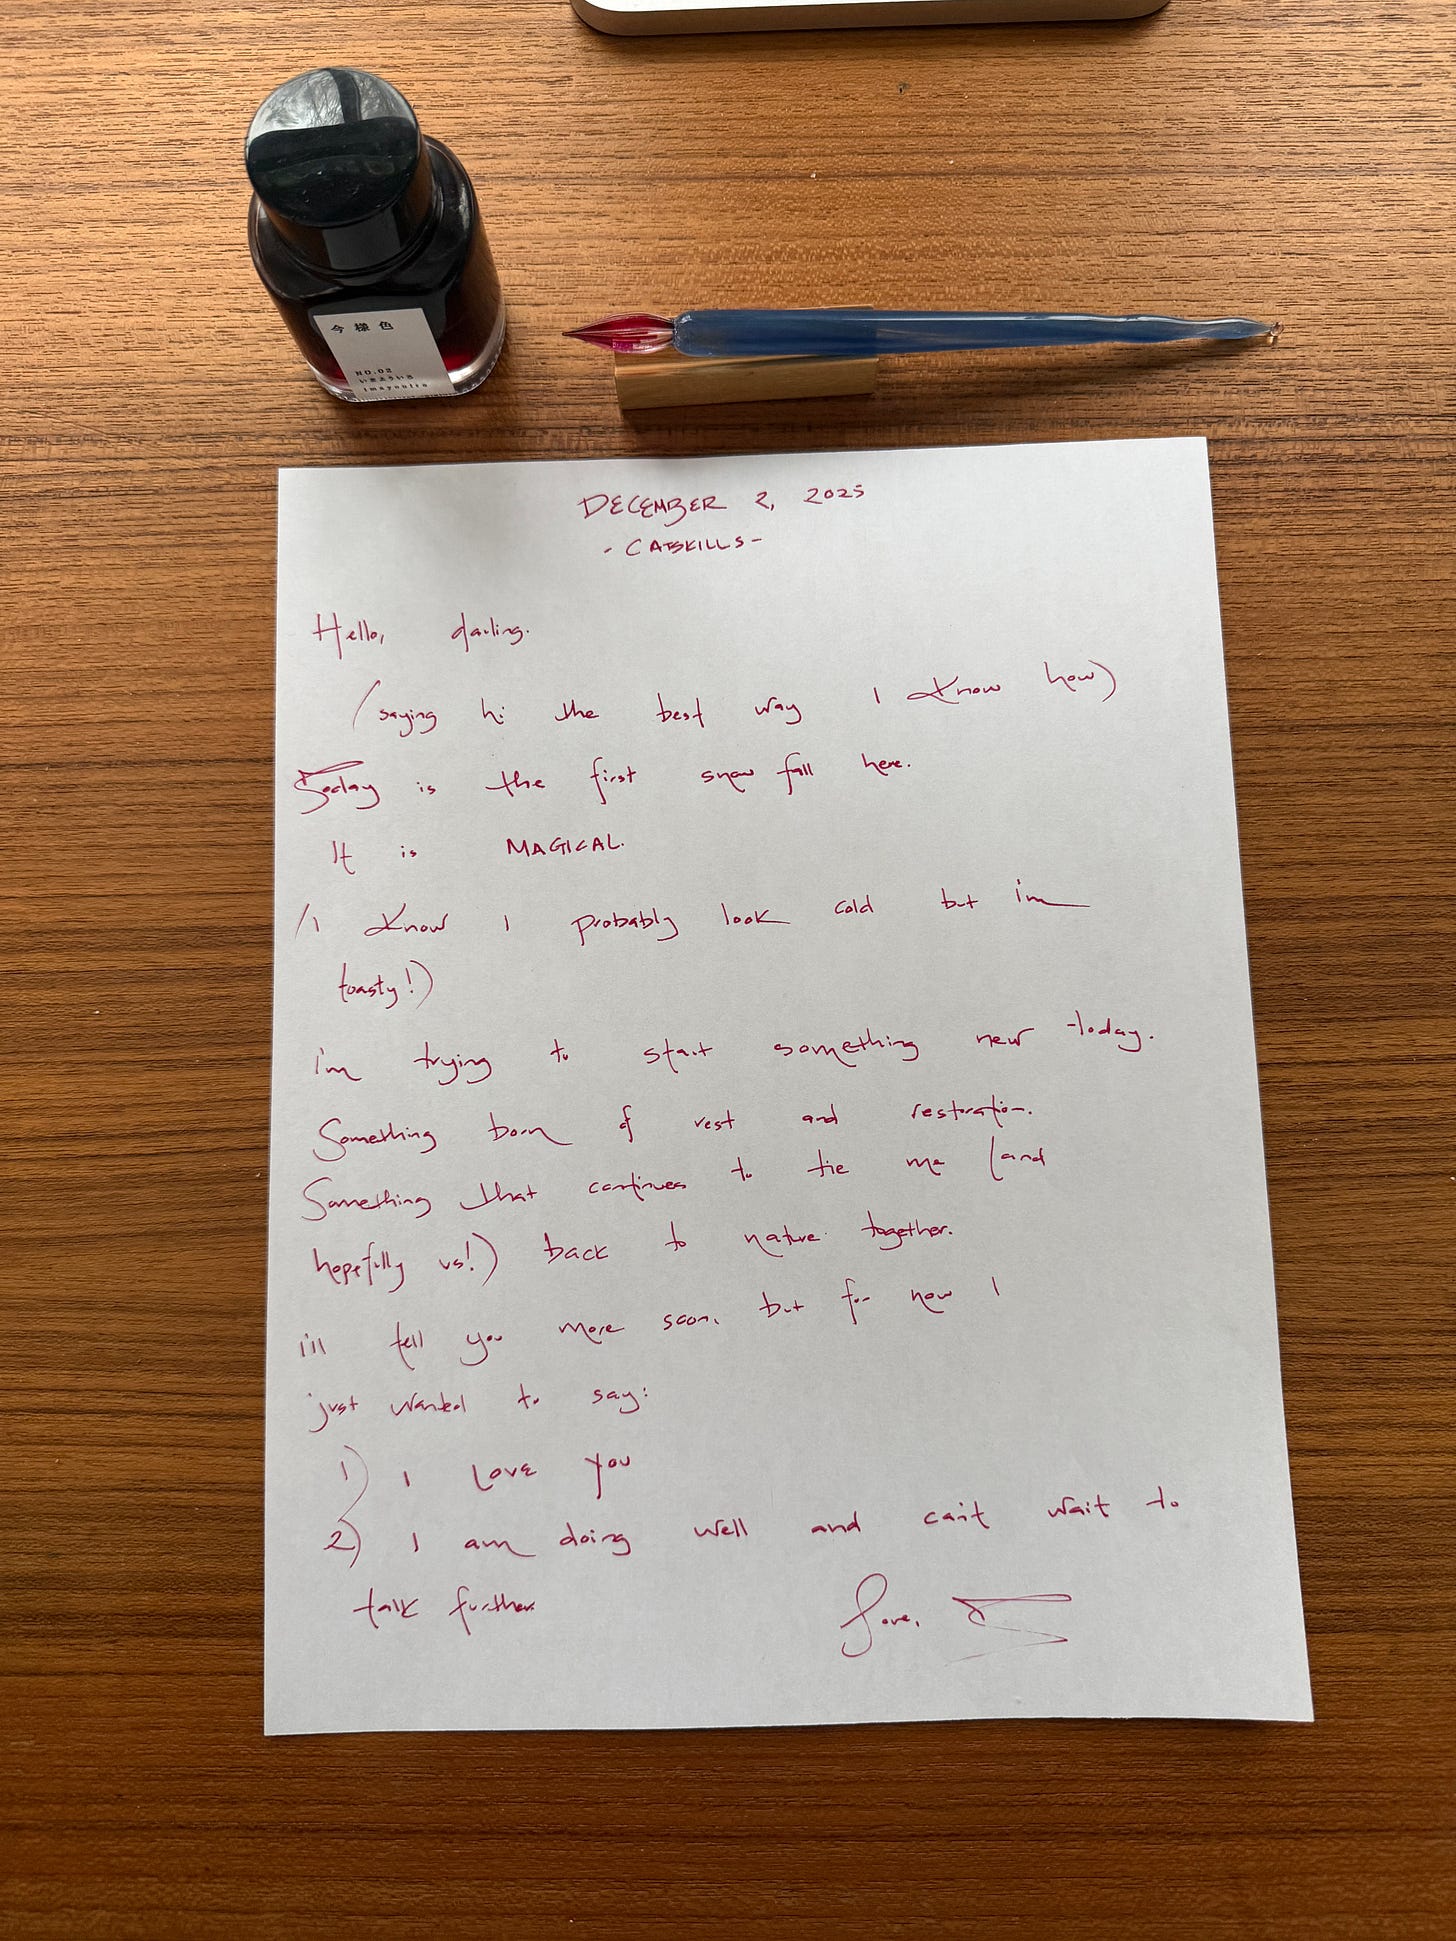 今様色
NO.02
いまよういろ
imayouiro
DECEMBER 2, 2025
- CATSKILLS -
Hello, darling.
(saying hi the best way I know how)
Today is the first snow fall here.
It is MAGICAL.
(I know I probably look cold but i'm
toasty!)
i'm trying to start something new today.
Something born of rest and restoration.
Something that continues to tie me (and
hopefully us!) back to nature together.
i'll tell you more soon, but for now I
just wanted to say:
1) I love you
2) I am doing well and can't wait to
talk further.
Love,